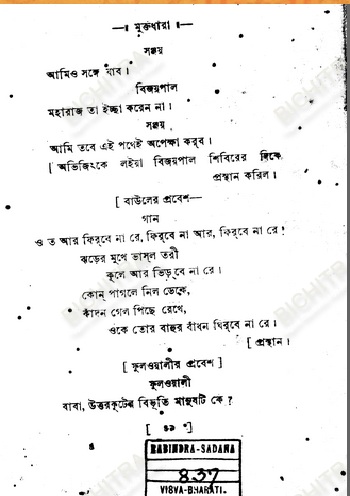 —॥ মুক্তধারা ॥—
সঞ্জয়
আমিও সঙ্গে যাব।
বিজয়পাল
মহারাজ তা ইচ্ছা করেন না।
সঞ্জয়
আমি তবে এই পথেই অপেক্ষা করব।
[ অভিজিৎকে লইয়া বিজয়পাল শিবিরের দিকে
প্রস্থান করিল।
[ বাউলের প্রবেশ—
গান
ও ত আর ফির্‌বে না রে, ফির্‌বে না আর, ফির্‌বে না রে!
ঝড়ের মুখে ভাস্‌ল তরী
কূলে আর ভিড়্‌বে না রে।
কোন্ পাগলে নিল ডেকে,
কাঁদন গেল পিছে রেখে,
ওকে তোর বাহুর বাঁধন ঘির্‌বে না রে।
[ প্রস্থান।
[ ফুলওয়ালীর প্রবেশ ]
ফুলওয়ালী
বাবা, উত্তরকূটের বিভূতি মানুষটি কে ?
RABINDRA-SADANA
837
VISWA-BHARATI.
BICHITRA
BICHITRA
BICHITRA
BICHITRA